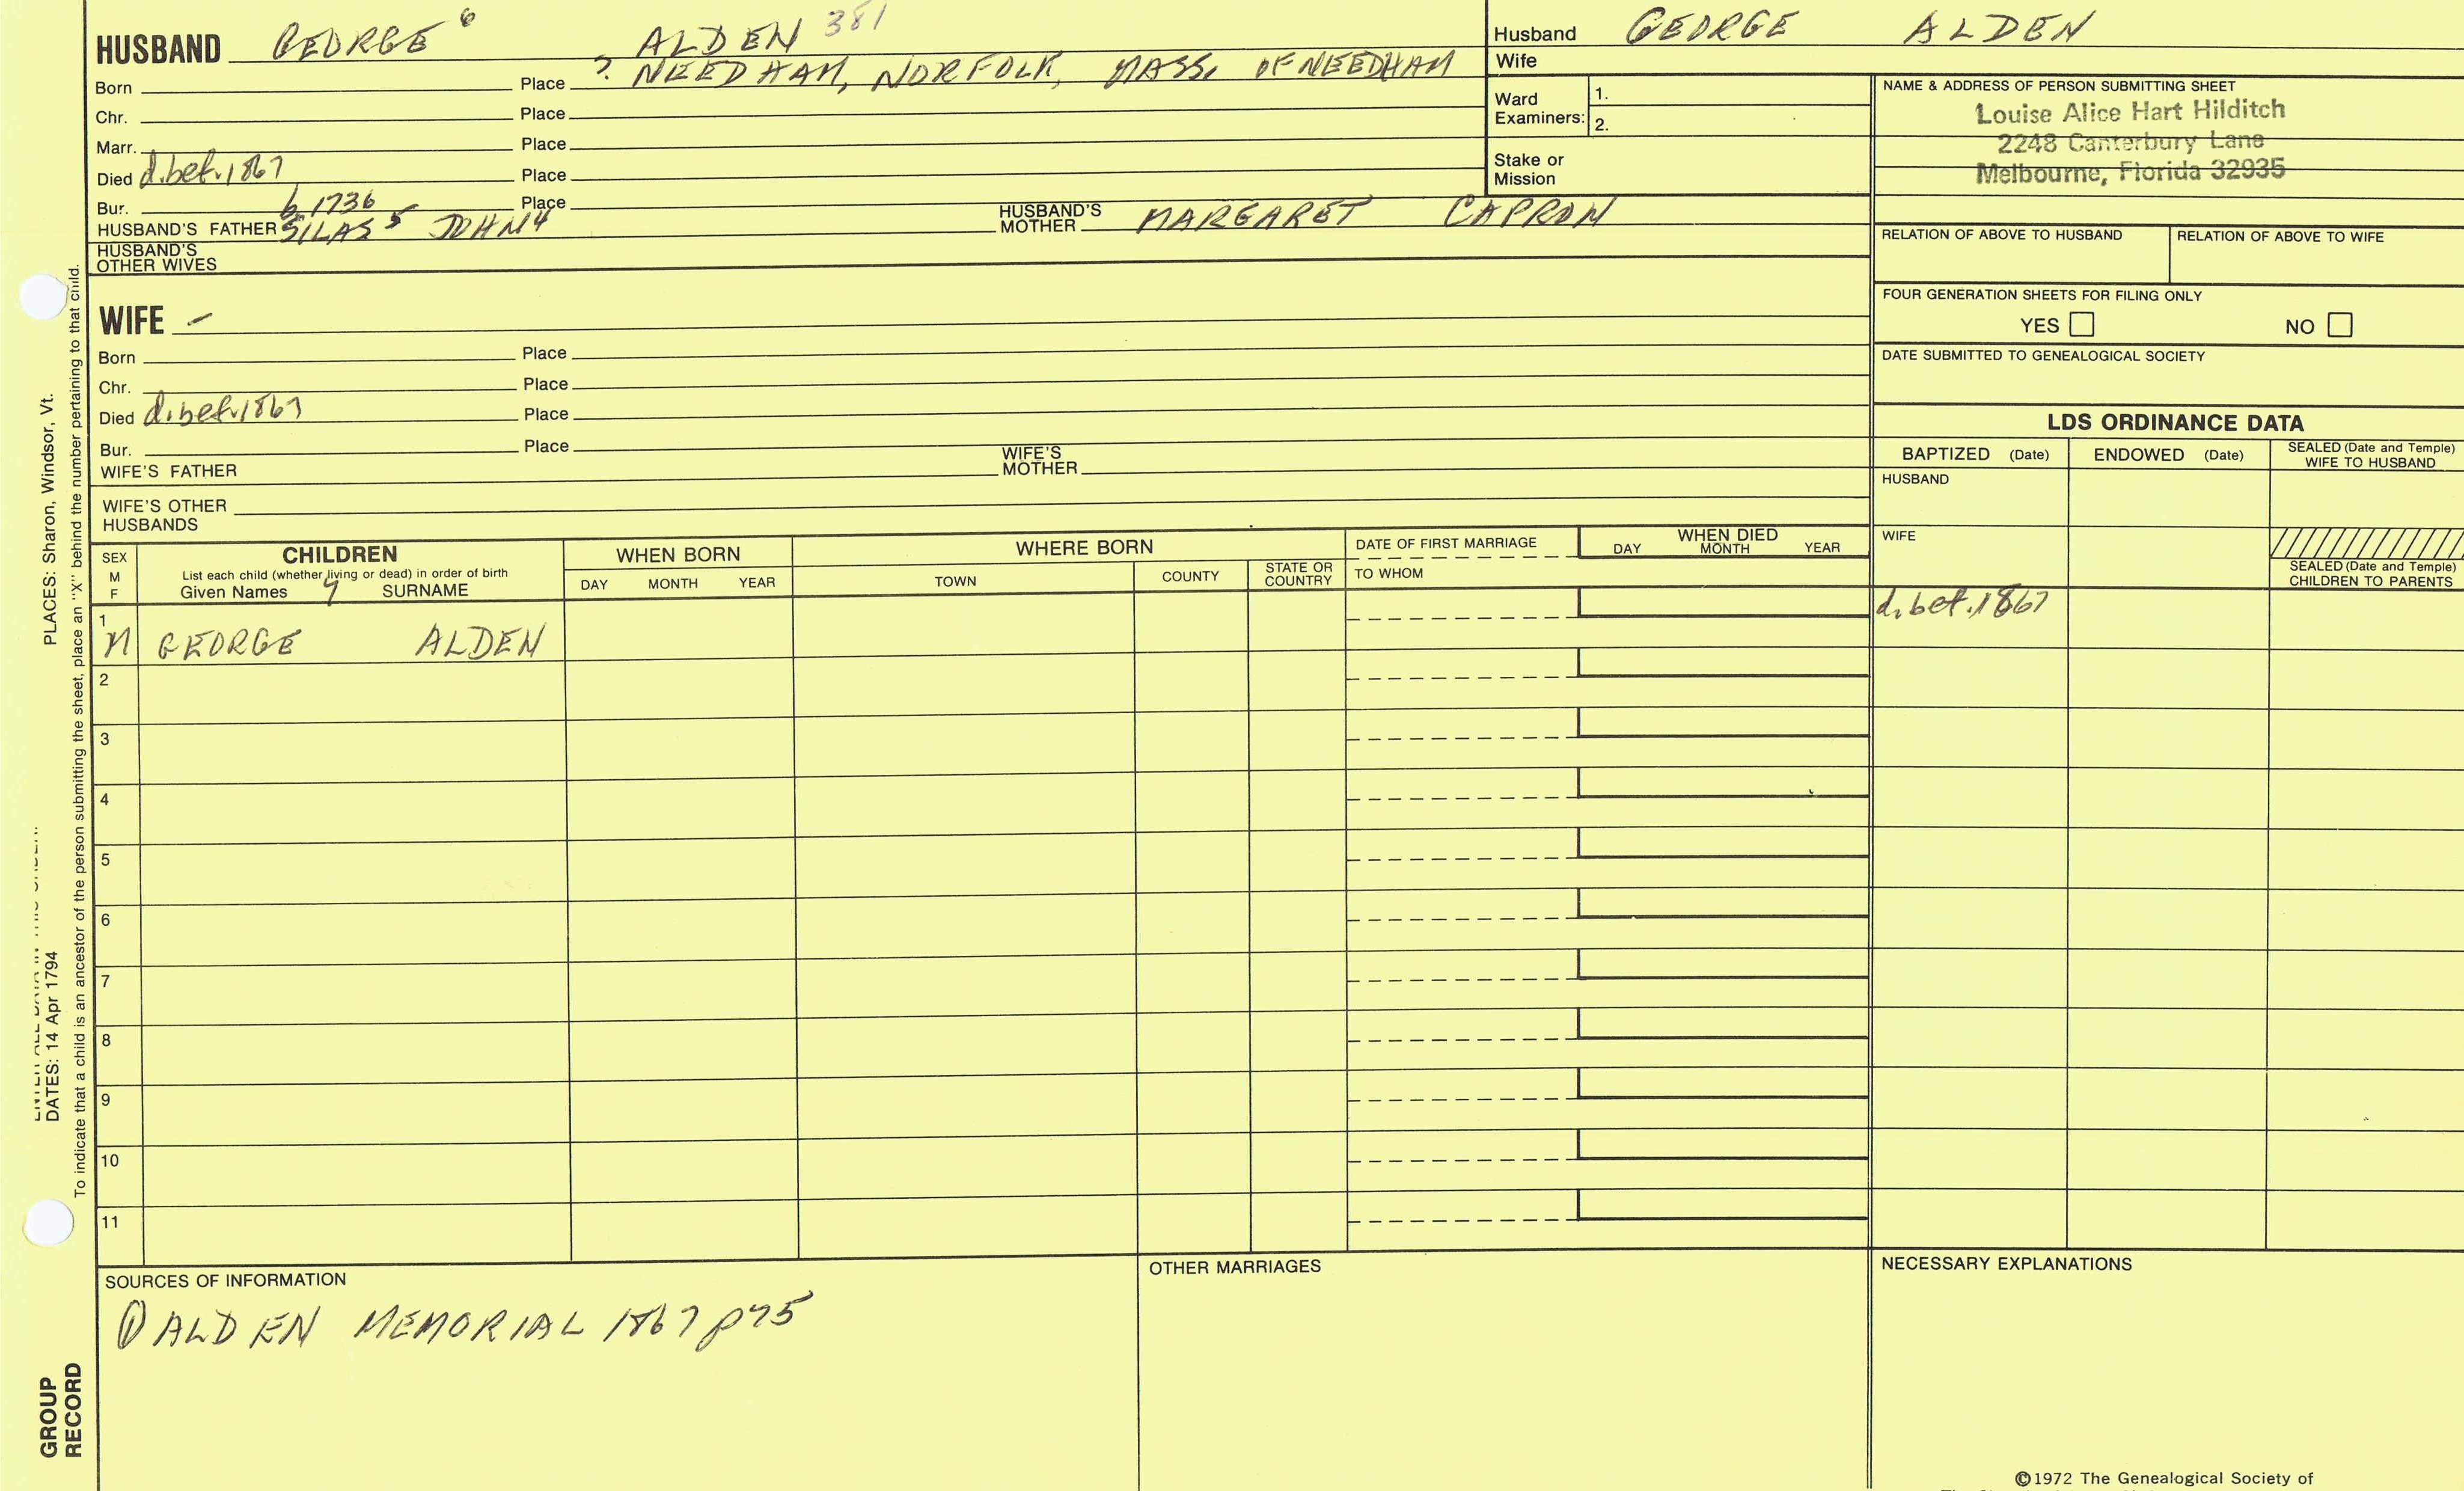 HUSBAND GEORGE 6 ALDEN 381
Born Place ? NEEDHAM, NORFOLK, MASS. OF NEEDHAM
Chr. Place
Marr. Place
Died d.bef.1867 Place
Bur. b 1736 Place
HUSBAND'S FATHER SILAS 5 JOHN 4 HUSBAND'S MOTHER MARGARET CAPRON
HUSBAND'S OTHER WIVES
WIFE –
Born Place
Chr. Place
Died d.bef.1867 Place
Bur. Place
WIFE'S FATHER WIFE'S MOTHER
WIFE'S OTHER HUSBANDS
Husband GEORGE ALDEN
Wife
Ward Examiners: 1.
2.
Stake or Mission
NAME & ADDRESS OF PERSON SUBMITTING SHEET
Louise Alice Hart Hilditch
2248 Canterbury Lane
Melbourne, Florida 32935
RELATION OF ABOVE TO HUSBAND RELATION OF ABOVE TO WIFE
FOUR GENERATION SHEETS FOR FILING ONLY
YES NO
DATE SUBMITTED TO GENEALOGICAL SOCIETY
LDS ORDINANCE DATA
BAPTIZED (Date) ENDOWED (Date) SEALED (Date and Temple) WIFE TO HUSBAND
HUSBAND
WIFE
SEALED (Date and Temple) CHILDREN TO PARENTS
SEX M F
CHILDREN
List each child (whether living or dead) in order of birth
Given Names 7 SURNAME
WHEN BORN
DAY MONTH YEAR
WHERE BORN
TOWN COUNTY STATE OR COUNTRY
DATE OF FIRST MARRIAGE
TO WHOM
WHEN DIED
DAY MONTH YEAR
1 M GEORGE ALDEN d.bef.1867
2
3
4
5
6
7
8
9
10
11
SOURCES OF INFORMATION
① ALDEN MEMORIAL 1867 p75
OTHER MARRIAGES
NECESSARY EXPLANATIONS
©1972 The Genealogical Society of
PLACES: Sharon, Windsor, Vt.
DATES: 14 Apr 1794
To indicate that a child is an ancestor of the person submitting the sheet, place an "X" behind the number pertaining to that child.
GROUP RECORD